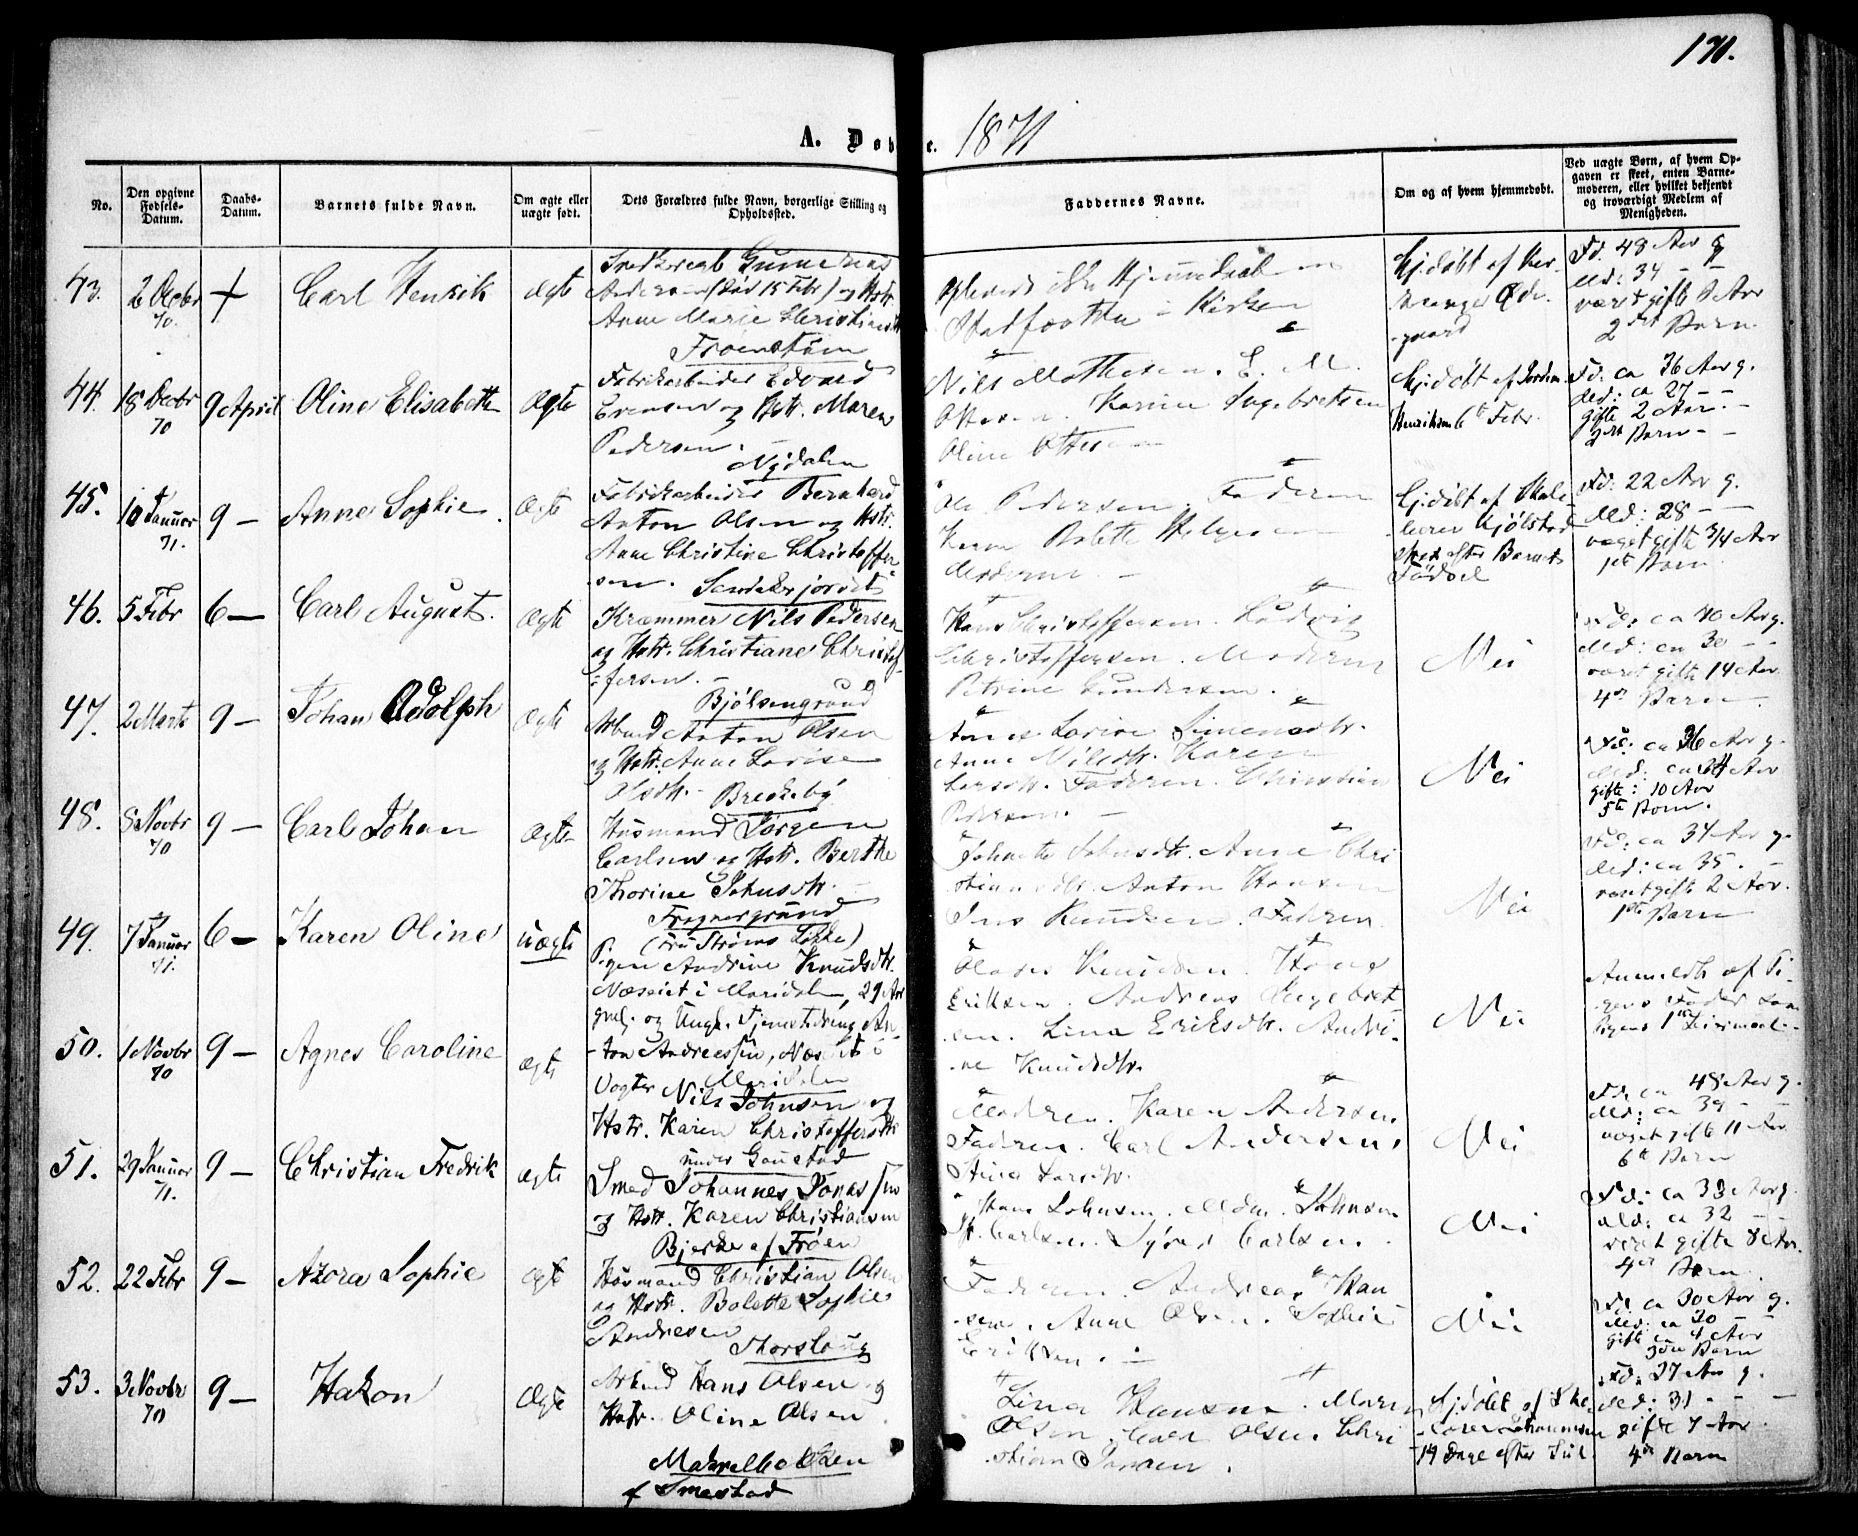 170.
A. Døb
e. 1871
No.
Den opgivne Fødsels-Datum.
Daabs-Datum.
Barnets fulde Navn.
Om ægte eller uægte født.
Dets Forældres fulde Navn, borgerlige Stilling og Opholdssted.
Faddernes Navne.
Om og af hvem hjemmedøbt.
Ved uægte Børn, af hvem Opgaven er skeet, enten Barnemoderen, eller hvilket bekjendt og troværdigt Medlem af Menigheden.
43. 2 Decbr 70. + Carl Henrik Ægte
Andersen (død 15 Febr) og Hstr.
Anne Marie Christiansdtr
Hj.døbt af
Fd. 48 Aar g.
Md: 34 - -
været gifte 8 Aar
2det Barn
44. 18 Decbr 70 9 April Oline Elisabeth Ægte
Fabrikarbeider Edvard
Evensen og Hstr. Maren
Pedersen.
Nydalen
Nils Mathesen. E. M.
Ottesen. Karine Ingebretsen
Oline Ottesen
Hj.døbt af Jordm.
Henriksen 6te Febr.
Fd: ca 36 Aar g.
Md: ca 27 - -
gifte 2 Aar. -
Barn - -
45. 10 Januar 71. 9 - Anne Sophie Ægte
Fabrikarbeider Bernhard
Anton Olsen og Hstr.
Anne Christine Christoffer-
sen.
Ole Pedersen. Faderen
Karen Bolette Helgesen
Moderen. -
Hj.døbt af Skole-
lærer Kjølstad
strax efter Barnets
Fødsel
Fd: 22 Aar g.
Md: 28 - -
været gifte 3/4 Aar
1ste Barn
46. 5 Febr 6 - Carl August. Ægte
Kræmmer Nils Pedersen
og Hstr. Christiane Christof-
fersen. -
Bjølsengrund
Hans Christoffersen. Ludvig
Christoffersen. Moderen
Petrine Gundersen.
Nei
Fd: ca 40 Aar g.
Md: ca 30 - -
været gifte 14 Aar
4de Barn
47. 2 Marts 9 - Johan Adolph Ægte
Arbmd Anton Olsen
og Hstr. Anne Lovise
Olsdtr. -
Brekkeby
Anne Nilsdtr. Karen
Larsdtr. Faderen. Christian
Pedersen. -
Nei
Fd: ca 36 Aar g.
Md: ca 34 Aar
gifte: 10 Aar
5te Barn.
48. 8 Novbr 70 9 - Carl Johan Ægte
Husmand Jørgen
Carlsen og Hstr. Berthe
Thorine Johnsdtr. -
Frognergrund
(Fru Strøms Løkke)
Johnette Johnsdtr. Anne Chri
stiansdtr. Anton Hansen
Jens Knudsen. Faderen
Nei
Fd: ca 34 Aar g.
Md: ca 35. -
været gifte 2 Aar.
1ste Barn
49. 7 Januar 71. 6 - Karen Oline uægte
Pigen Andrine Knudsdtr.
Næsset i Maridalen, 29 Aar
gml. og Ungk. Tjenestedreng An-
ton Andreassen, Næsset i
Maridalen
Knudsen. Hans
Eriksen. Andreas Ingebret
sen. Lina Eriksdtr. Andri-
ne Knudsdtr.
Nei
Anmeldt af Pi-
gens Fader
50. 1 Novbr 70 9 - Agnes Caroline Ægte
Vogter Nils Johnsen og
Hstr. Karen Christoffersdtr
under Gaustad
Moderen. Karen Andersen
Faderen. Carl Andersen,
Stina Larsdtr.
Nei
Fd: ca 48 Aar g.
Md: ca 39 - -
været gifte 11 Aar
6te Barn
51. 29 Januar 71. 9 - Christian Fredrik Ægte
Smed Johannes Jonassen
og Hstr. Karen Christiansen
Bjerke af Frøen
Hans Johnsen. Mdm. Johnsen
Carlsen. Syver Carlsen.
Nei
Fd: ca 33 Aar g.
Md: ca 32 - -
været gifte 8 Aar.
4de Barn
52. 22 Febr 9 - Azora Sophie Ægte
Husmand Christian Olsen
og Hstr. Bolette Sophie
Andresen
Thorshoug
Faderen. Andreas Han
sen. Anne Olsen. Sophie
Eriksen. -
Nei
Fd. ca 30 Aar g.
Md: ca 30 -
gifte ca 4 Aar
3die Barn
53. 3 Novbr 70 9 - Hakon Ægte
Arbmd Hans Olsen og
Hstr. Oline Olsen
af Smestad
Lina Hansen. Maren
Olsen. Olsen. Chri
stian Jansen.
Hj.døbt af
Johannesen
14 Dage efter Jul.
Fd: 37 Aar g.
Md: 31 - -
gifte 7 Aar
4de Barn